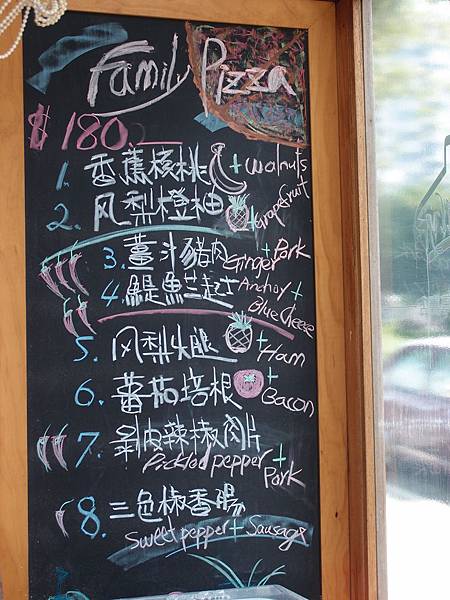 Family Pizza
$180
1. 香蕉核桃 + walnuts
2. 风梨橙柚 + Grapefruit
3. 薑汁豬肉 Ginger + Pork
4. 鯷魚芝起士 Anchoy + Blue Cheese
5. 风梨火腿 + Ham
6. 蕃茄培根 + Bacon
7. 剥皮辣椒肉片
Pickled pepper + Pork
8. 三色椒香腸
Sweet pepper + Sausage